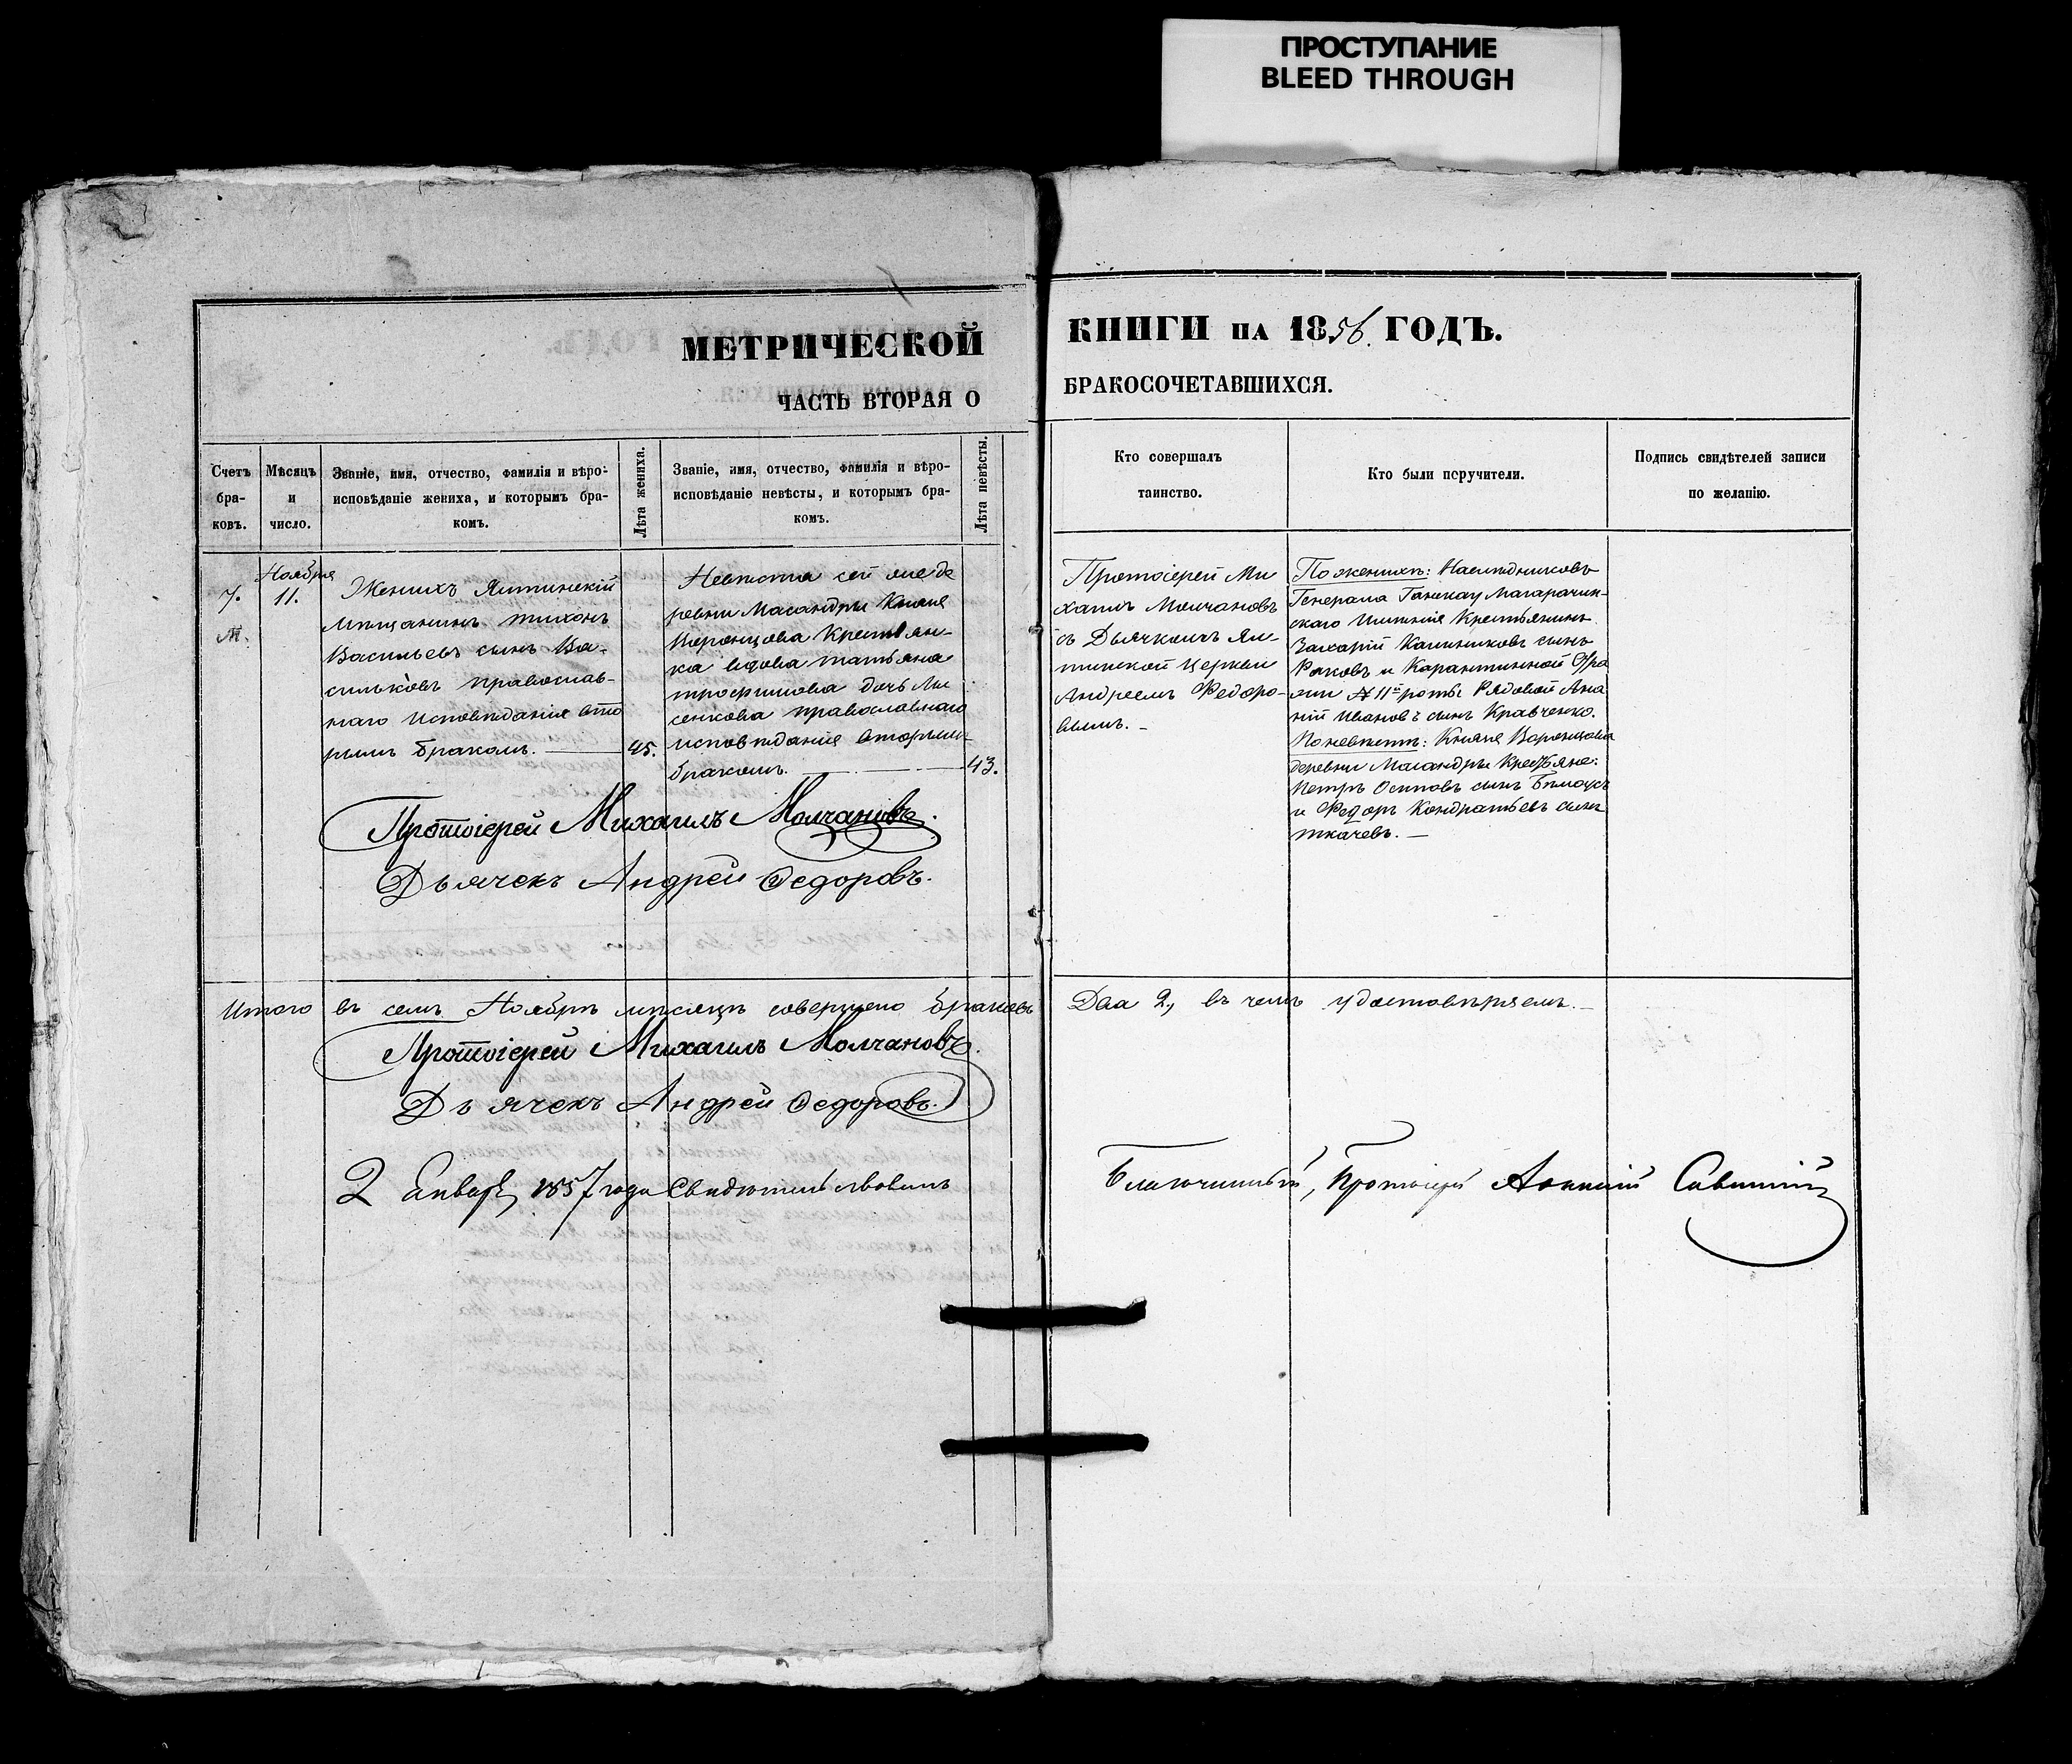 ПРОСТУПАНИЕ
BLEED THROUGH
МЕТРИЧЕСКОЙ
ЧАСТЬ ВТОРАЯ О
КНИГИ НА 1856. ГОДЪ.
БРАКОСОЧЕТАВШИХСЯ.
Счетъ
бра-
ковъ.
Мѣсяцъ
и
число.
Званіе, имя, отчество, фамилія и вѣро-
исповѣданіе жениха, и которымъ бра-
комъ.
Лѣта жениха.
Званіе, имя, отчество, фамилія и вѣро-
исповѣданіе невѣсты, и которымъ бра-
комъ.
Лѣта невѣсты.
Кто совершалъ
таинство.
Кто были поручители.
Подпись свидѣтелей записи
по желанію.
7.
Ноября
11.
Женихъ Ялтинскій
мѣщанинъ Тихонъ
Васильевъ сынъ Ва-
сильковъ православ-
наго исповѣданія вто
рымъ бракомъ.
45.
Невѣста сей же де
ревни Масандры Князя
Воронцова Крестьян-
ка вдова Татьяна
Трофимова дочь Лы
сенкова православнаго
исповѣданія вторымъ
бракомъ.
43.
Протоіерей Ми
хаилъ Молчановъ
съ Дьячкомъ Ял-
тинской Церкви
Андреемъ Федоро-
вымъ.
По женихѣ: Наслѣдниковъ
Генерала Магарачин-
скаго имѣнія Крестьянинъ
Захарій Калинниковъ сынъ
Раковъ и Карантинной Стра
жи № 11й роты Рядовой Ана
ній Ивановъ сынъ Кравченко.
По невѣстѣ: Князя Воронцова
деревни Масандры Крестьяне:
Петръ Осиповъ сынъ Бѣлоусъ
и Федоръ Кондратьевъ сынъ
Ткачевъ.
Протоіерей Михаилъ Молчановъ.
Дьячекъ Андрей Федоровъ.
Итого въ семъ Ноябрѣ мѣсяцѣ совершено браковъ Два 2, въ чемъ удостовѣряемъ.
Протоіерей Михаилъ Молчановъ.
Дьячекъ Андрей Федоровъ.
2 Января 1857 года Свидѣтельствовалъ Благочинный, Протоіерей